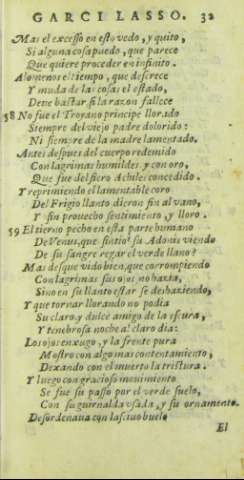 GARCI LASSO. 32
Mas el excesso en esto vedo, y quito,
Si alguna cosa puedo, que parece
Que quiere proceder en infinito.
Alomenos el tiempo, que descrece
Y muda de las cosas el estado,
Deve bastar si la razon fallece
58 No fue el Troyano principe llorado
Siempre del viejo padre dolorido:
Ni siempre de la madre lamentado.
Antes despues del cuerpo redemido
Con lagrimas humildes y con oro,
Que fue del fiero Achiles concedido.
Y reprimiendo el lamentable coro
Del Frigio llanto dieron fin al vano,
Y sin provecho sentimiento, y lloro.
59 El tierno pecho en esta parte humano
De Venus, que sintio? su Adonis viendo
De su sangre regar el verde llano?
Mas desque vido bien, que corrompiendo
Con lagrimas sus ojos no hazia,
Sino en su llanto estar se deshaziendo,
Y que tornar llorando no podia
Su claro, y dulce amigo de la escura,
Y tenebrosa noche al claro dia:
Los ojos enxugo, y la frente pura
Mostro con algo mas contentamiento,
Dexando con el muerto la tristura.
Y luego con gracioso movimiento
Se fue su passo por el verde suelo,
Con su guirnalda usada, y su ornamento.
Desordenava con lascivo buelo
El